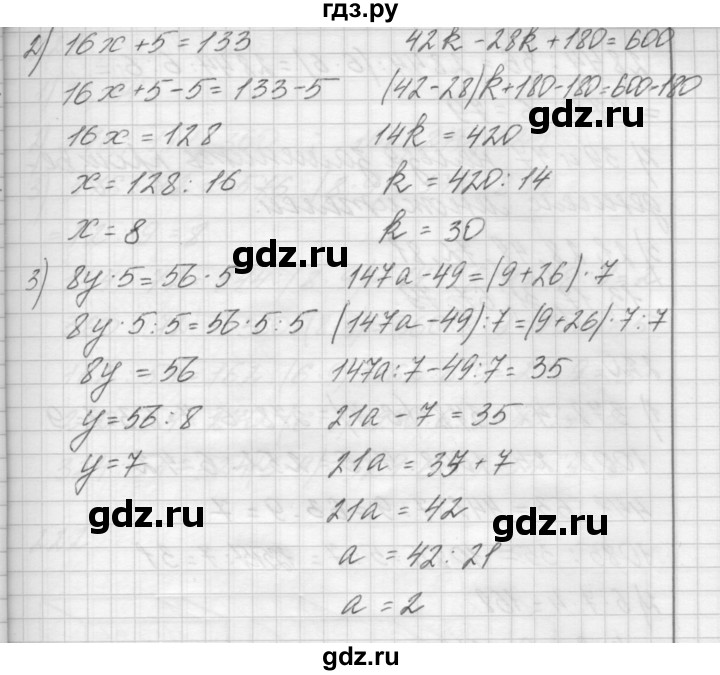 гдз.ру
2) 16x+5=133
16x+5-5=133-5
16x=128
x=128:16
x=8
42k-28k+180=600
(42-28)k+180-180=600-180
14k=420
k=420:14
k=30
gdz.ru
gdz.ru
3) 8y·5=56·5
8y·5:5=56·5:5
8y=56
y=56:8
y=7
147a-49=(9+26)·7
(147a-49):7=(9+26)·7:7
147a:7-49:7=35
21a-7=35
21a=35+7
21a=42
a=42:21
a=2
gdz.ru
gdz.ru
gdz.ru